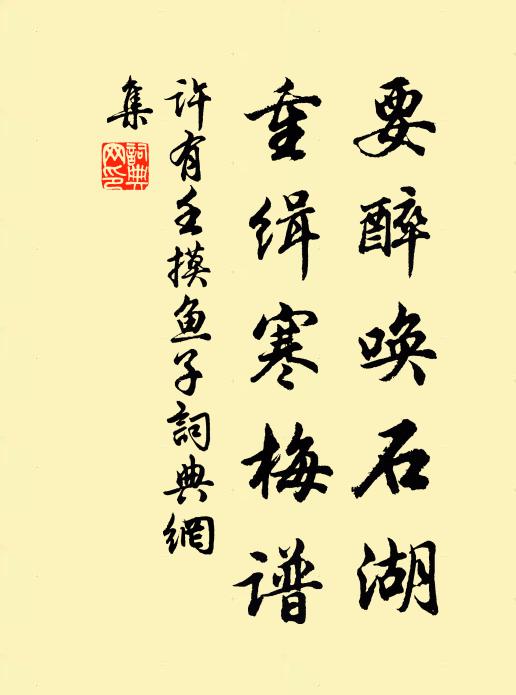 要醉唤石湖
重缉寒梅谱
许有壬摸鱼子詞典網
集
詞典網印